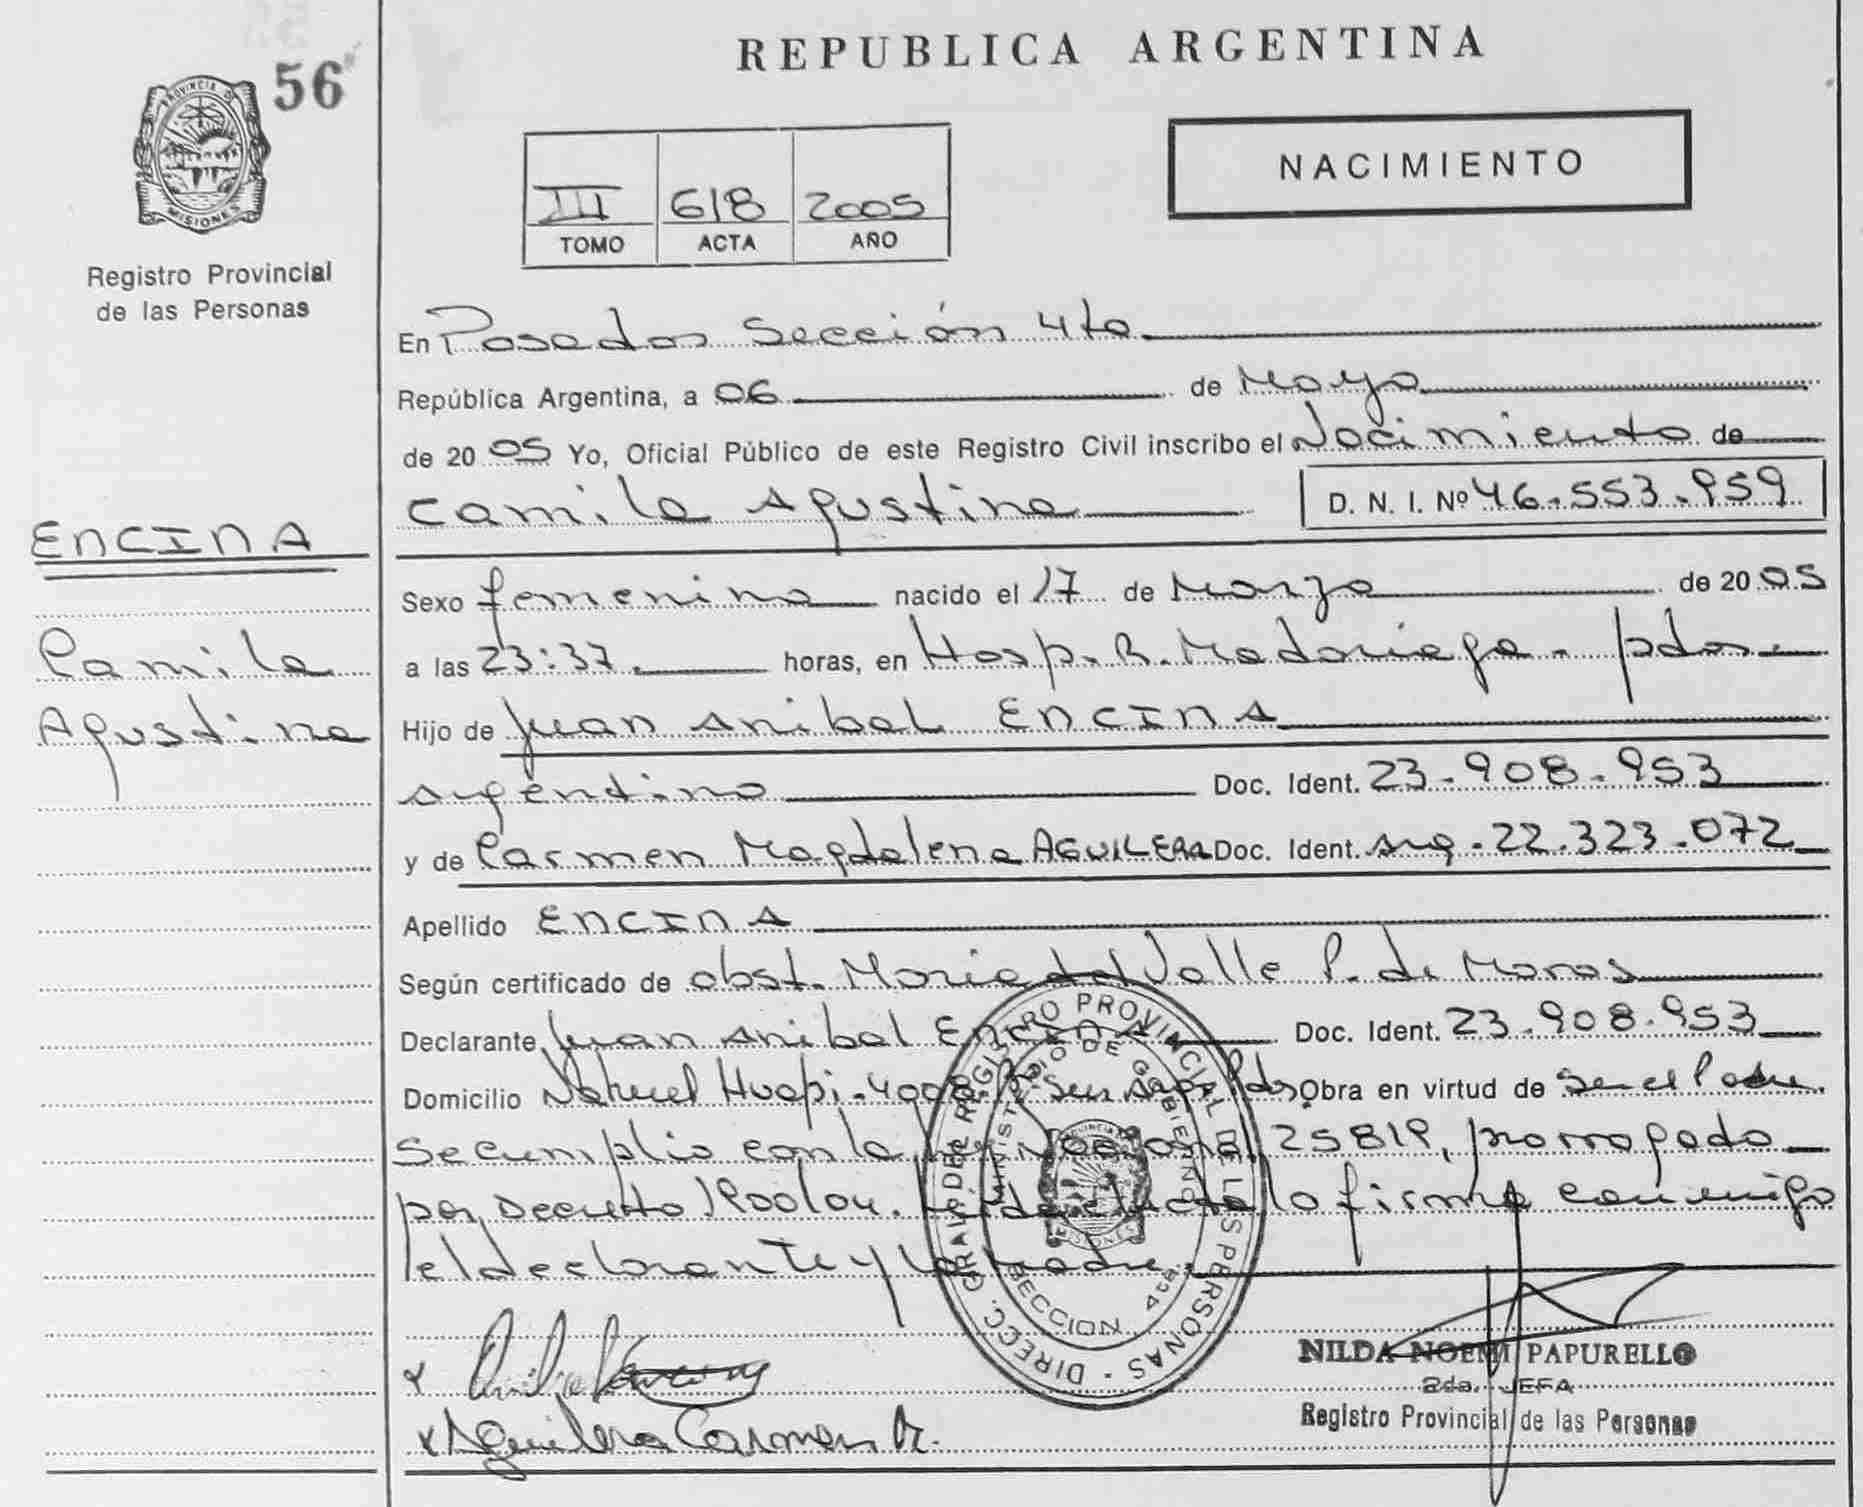 56
PROVINCIA DE
MISIONES
Registro Provincial
de las Personas
REPUBLICA ARGENTINA
NACIMIENTO
III 618 2005
TOMO ACTA AÑO
En Posadas Sección 4ta
República Argentina, a 06 de Mayo
de 2005 Yo, Oficial Público de este Registro Civil inscribo el Nacimiento de
Camila Agustina D. N. I. Nº 46.553.959
ENCINA
Camila
Agustina
Sexo femenino nacido el 17 de Marzo de 2005
a las 23:37 horas, en Hosp. R. Madariaga - pdas
Hijo de Juan Anibal ENCINA
argentino Doc. Ident. 23.908.953
y de Carmen Magdalena AGUILERA Doc. Ident. arg. 22.323.072
Apellido ENCINA
Según certificado de obst. Maria del Valle P. de Moras
Declarante Juan Anibal ENCINA Doc. Ident. 23.908.953
Domicilio Nahuel Huapi 4008 Pdas Obra en virtud de Ser el Padre.
Se cumplio con la ley Nacional 25819, prorrogado
por Decreto 1900/04. Leida el acta lo firma conmigo
el declarante y la madre.
DIRECC. GRAL. DEL REGISTRO PROVINCIAL DE LAS PERSONAS
MINISTERIO DE GOBIERNO
SECCION 4ta
NILDA NOEMI PAPURELLO
2da. JEFA
Registro Provincial de las Personas
x
x Aguilera Carmen M.